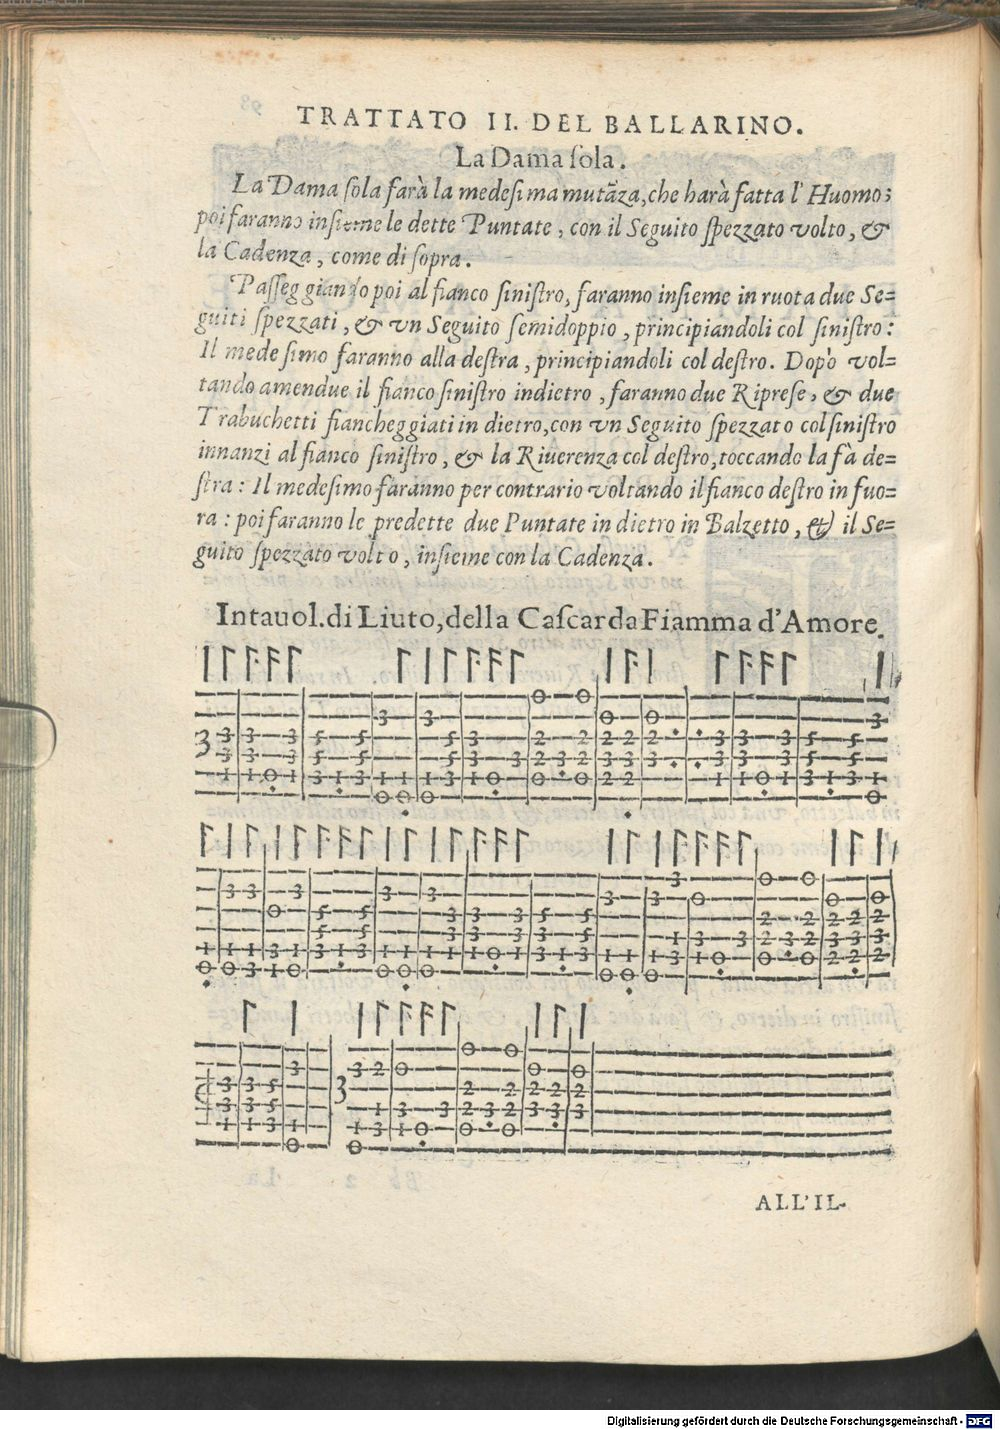 TRATTATO II. DEL BALLARINO.
La Dama ſola.
La Dama ſola farà la medeſima mutãza, che harà fatta l' Huomo;
poi faranno inſieme le dette Puntate, con il Seguito ſpezzato volto, &
la Cadenza, come di ſopra.
Paſſeggiando poi al fianco ſiniſtro, faranno inſieme in ruota due Se=
guiti ſpezzati, & vn Seguito ſemidoppio, principiandoli col ſiniſtro:
Il medeſimo faranno alla deſtra, principiandoli col deſtro. Dopò vol=
tando amendue il fianco ſiniſtro indietro, faranno due Ripreſe, & due
Trabuchetti fiancheggiati in dietro, con vn Seguito ſpezzato col ſiniſtro
innanzi al fianco ſiniſtro, & la Riuerenza col deſtro, toccando la fà de=
ſtra: Il medeſimo faranno per contrario voltando il fianco deſtro in fuo=
ra: poi faranno le predette due Puntate in dietro in Balzetto, & il Se=
guito ſpezzato volto, inſieme con la Cadenza.
Intauol. di Liuto, della Caſcarda Fiamma d'Amore.
ALL'IL-
Digitalisierung gefördert durch die Deutsche Forschungsgemeinschaft - DFG